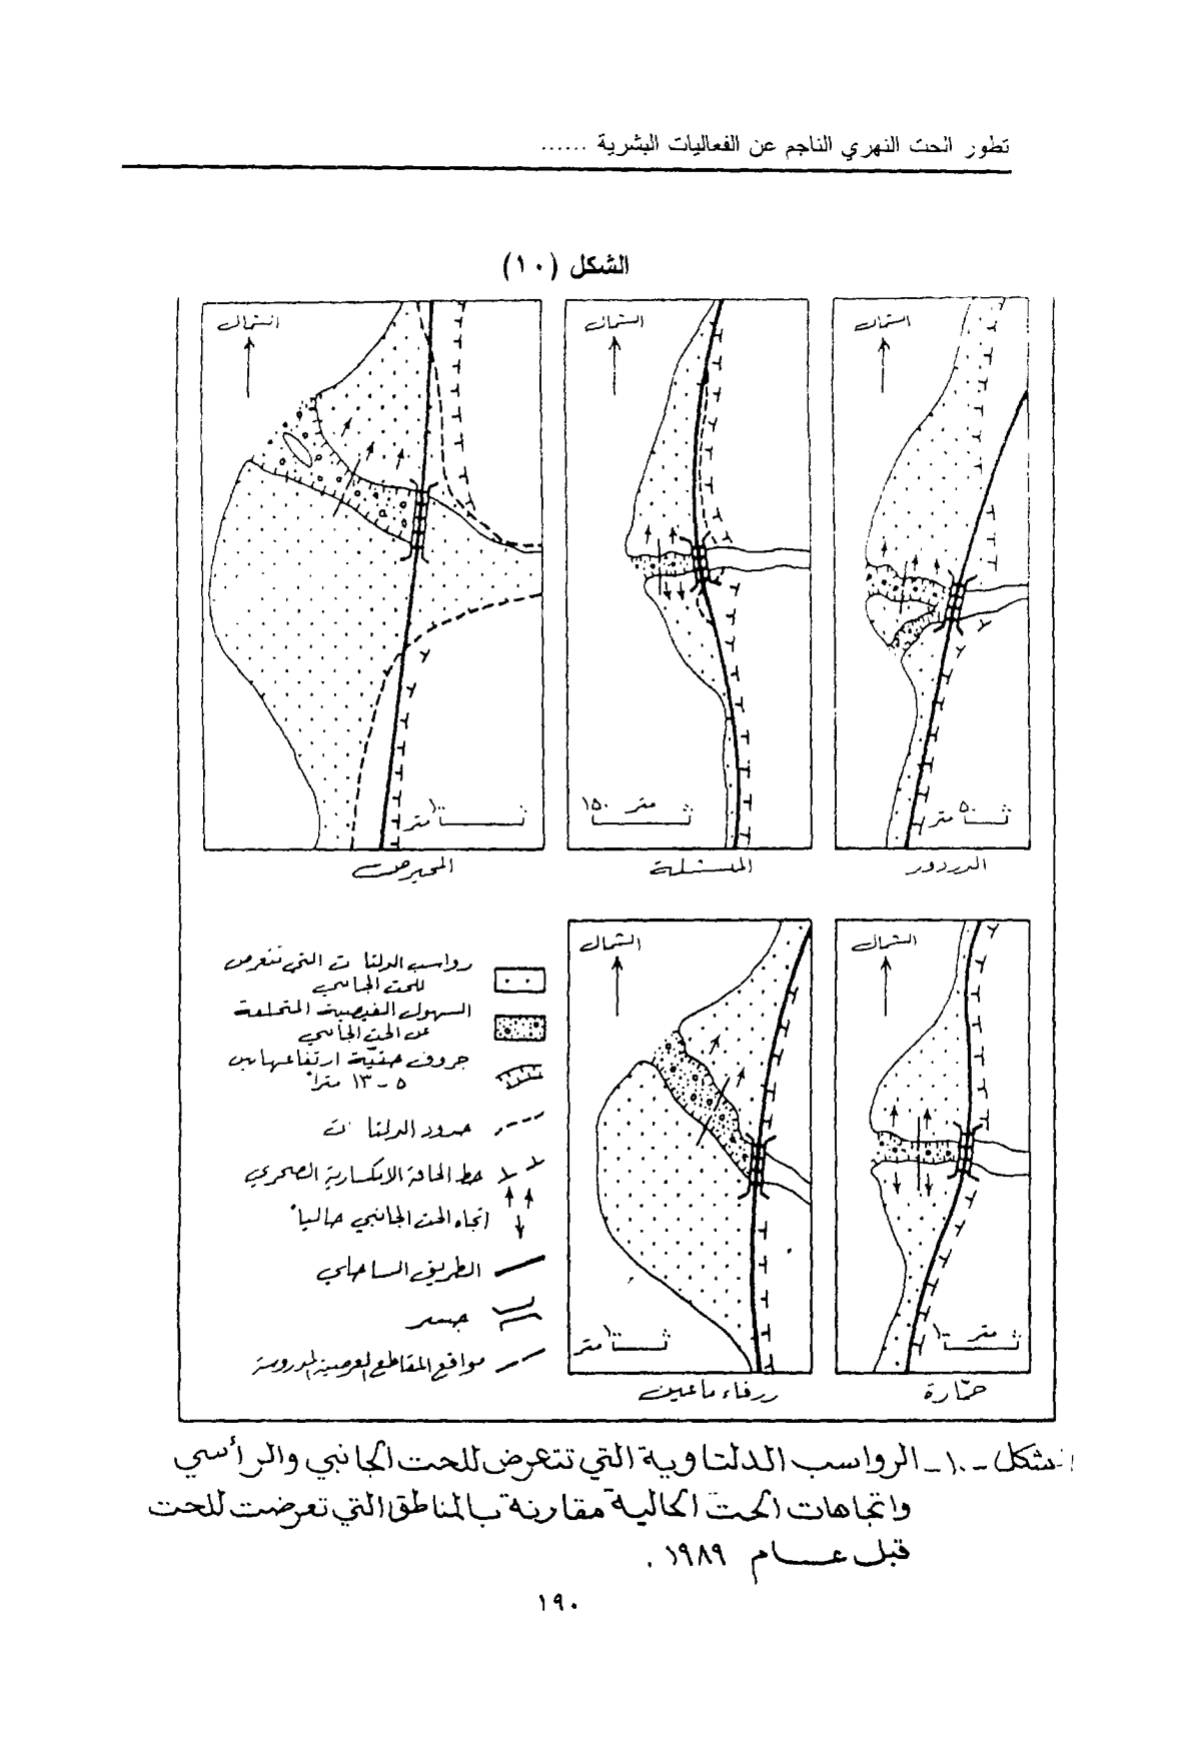 تطور الحت النهري الناجم عن الفعاليات البشرية ......
الشكل (١٠)
الشمال
الشمال
الشمال
٥٠ متر
١٥٠ متر
١٠٠ متر
الدردور
المشلة
الشمال
الشمال
١٠٠ متر
١٠٠ متر
حمّارة
زرقاء ماعين
رواسب الدلتا ت التي تتعرض
للحت الجانبي
السهول الفيضية المتخلفة
عن الحت الجانبي
جروف حتية ارتفاعها بين
٥ - ١٣ متراً
حدود الدلتا ت
خط الحافة الانكسارية الصخري
اتجاه الحت الجانبي حالياً
الطريق الساحلي
جسر
مواقع المقاطع العرضية المدروسة
الشكل -١٠- الرواسب الدلتاوية التي تتعرض للحت الجانبي والرأسي
واتجاهات الحت الحالية مقارنة بالمناطق التي تعرضت للحت
قبل عام ١٩٨٩ .
١٩٠